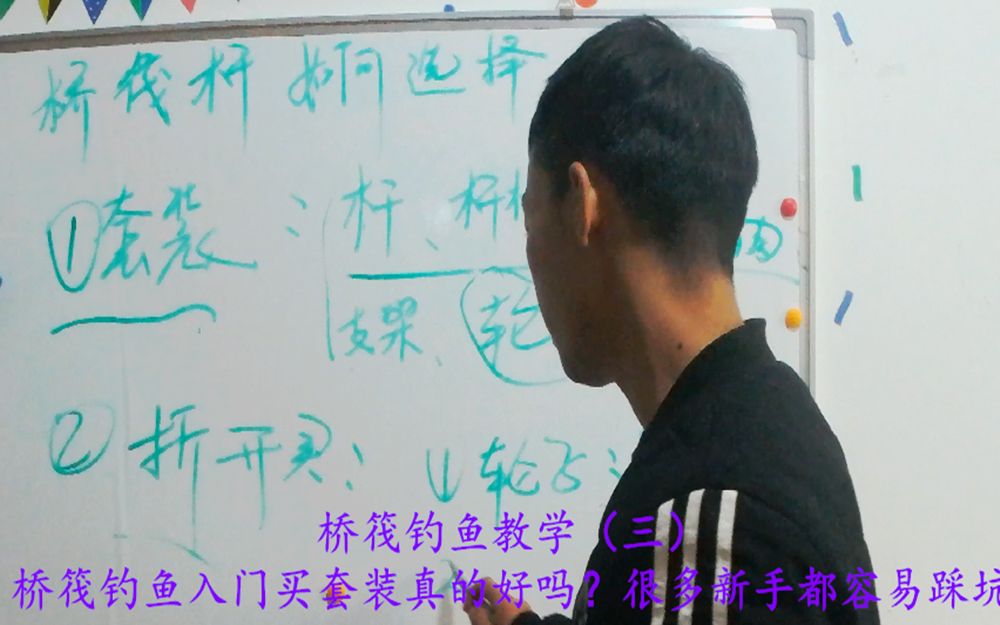 桥筏杆如何选择
①套装：杆、杆
支架、轮
②拆开买：↓轮子：
桥筏钓鱼教学（三）
桥筏钓鱼入门买套装真的好吗？很多新手都容易踩坑